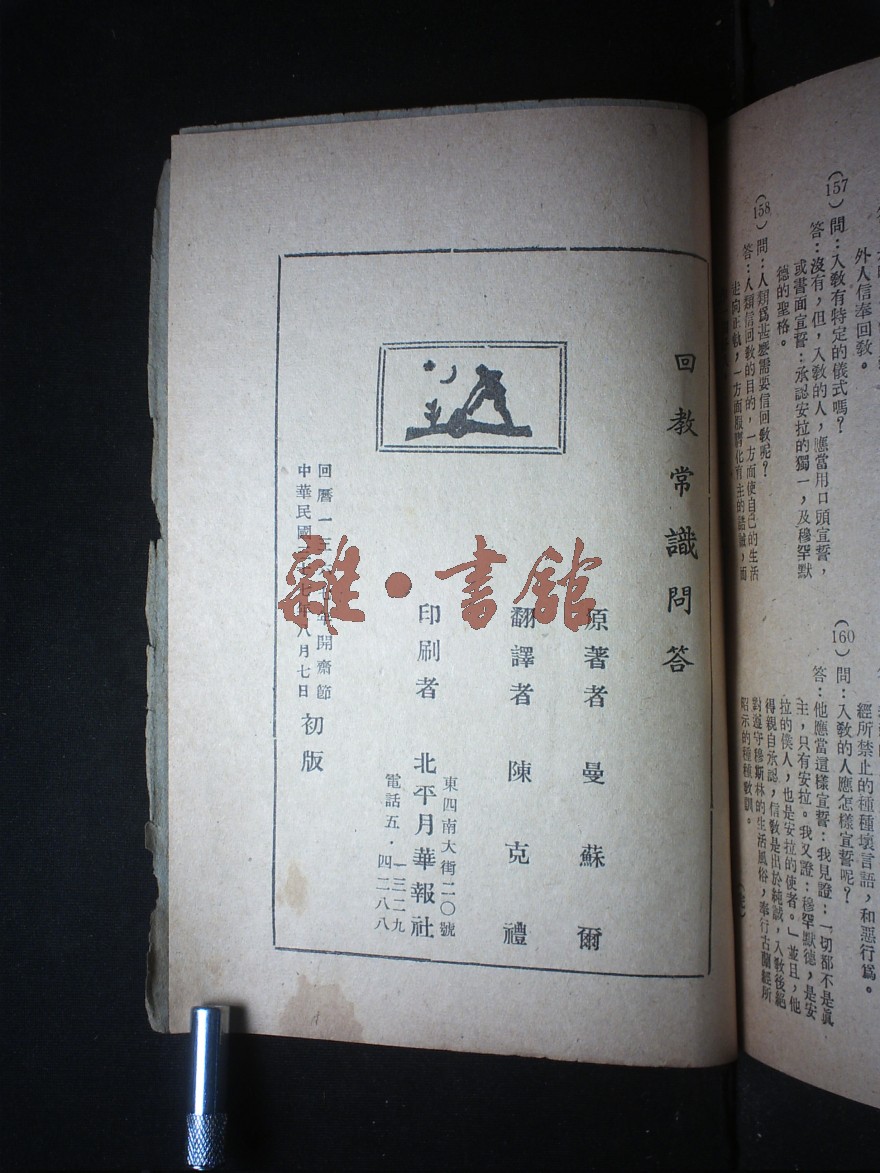 外人信奉回教。
(157)問：入教有特定的儀式嗎？
答：沒有，但，入教的人，應當用口頭宣誓，
或書面宣誓：承認安拉的獨一，及穆罕默
德的聖格。
(158)問：人類爲甚麼需要信回教呢？
答：人類信回教的目的，一方面使自己的生活
經所禁止的種種壞言語，和惡行爲。
(160)問：入教的人應怎樣宣誓呢？
答：他應當這樣宣誓：我見證：一切都不是眞
主，只有安拉。我又證：穆罕默德，是安
拉的僕人，也是安拉的使者。」並且，他
得親自承認，信教是出於純誠，入教後絕
對遵守穆斯林的生活風俗，奉行古蘭經所
昭示的種種教訓。
回教常識問答
原著者 曼蘇爾
翻譯者 陳克禮
印刷者 北平月華報社
東四南大街二〇號
電話五・一三二九
四二八八
回曆一三 年開齋節
中華民國 七年八月七日
初版
雜·書館